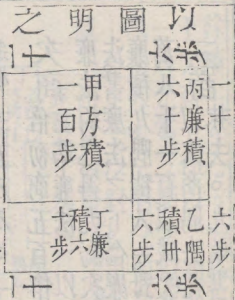 以圖明之
六步
一十
一十
丙廉積
六十步
甲方積
一百步
六步
乙隅
積卅
六步
丁廉
積六
十步
六步
一十